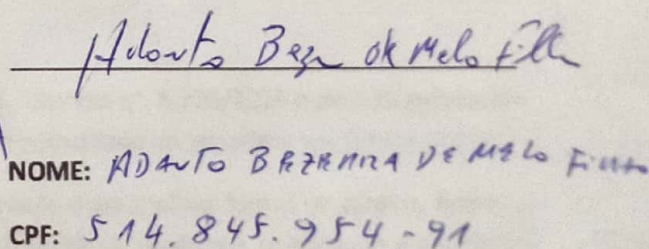 Adauto Bezer de Melo Filho
NOME: ADAUTO BEZERRA DE MELO FILHO
CPF: 514.845.954-91